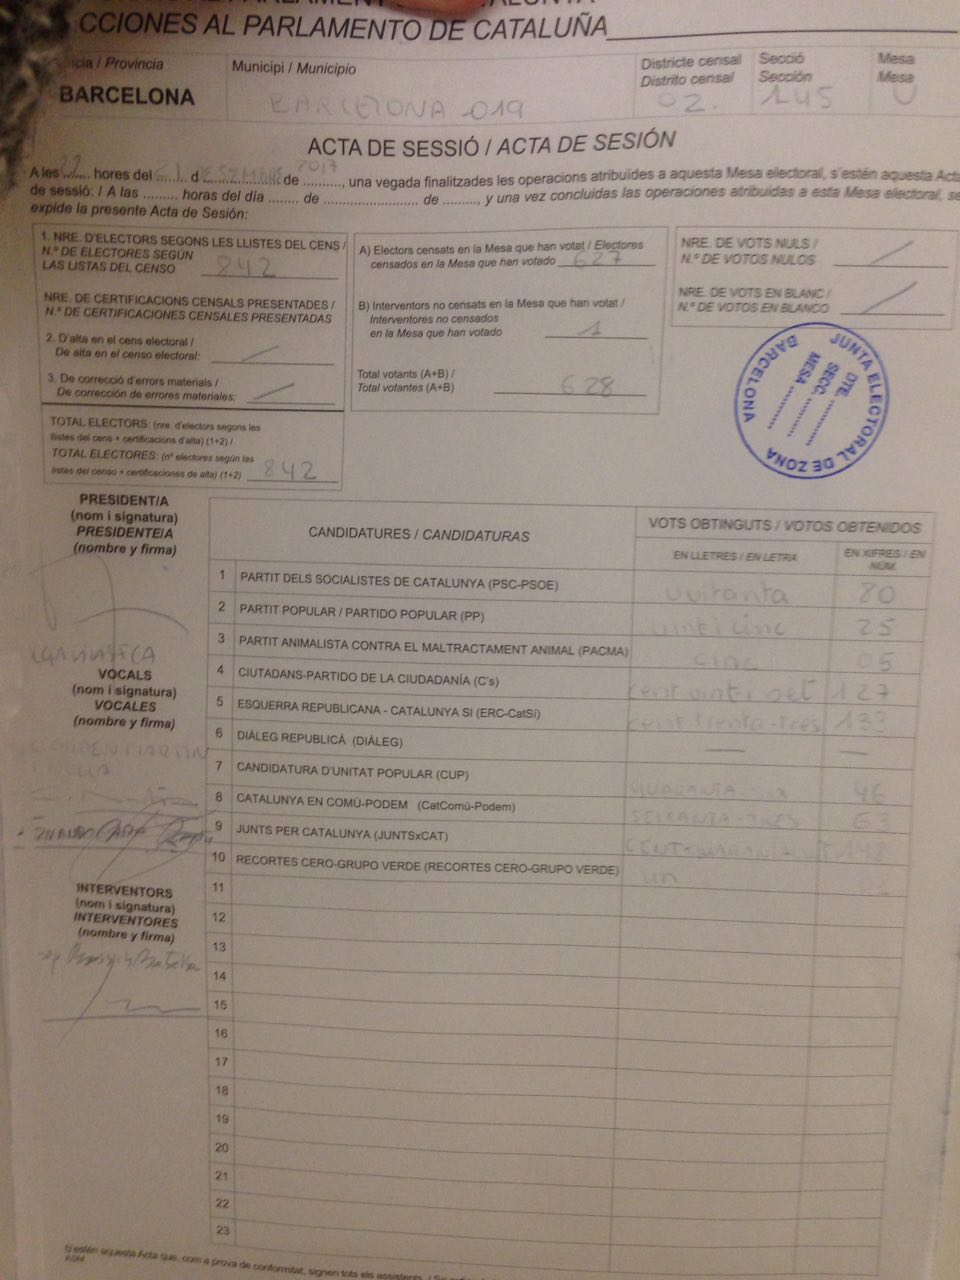 CCIONES AL PARLAMENTO DE CATALUÑA
/ Provincia
BARCELONA
Municipi / Municipio
BARCELONA 019
Districte censal
Distrito censal
02.
Secció
Sección
145
Mesa
Mesa
U
ACTA DE SESSIÓ / ACTA DE SESIÓN
A les 22 hores del 21 d DESEMBRE de 2017, una vegada finalitzades les operacions atribuïdes a aquesta Mesa electoral, s'estén aquesta Acta
de sessió: / A las ........ horas del día ....... de ...................... de ........, y una vez concluidas las operaciones atribuidas a esta Mesa electoral, se
expide la presente Acta de Sesión:
1. NRE. D'ELECTORS SEGONS LES LLISTES DEL CENS /
N.º DE ELECTORES SEGÚN
LAS LISTAS DEL CENSO 842
NRE. DE CERTIFICACIONS CENSALS PRESENTADES /
N.º DE CERTIFICACIONES CENSALES PRESENTADAS
2. D'alta en el cens electoral /
De alta en el censo electoral:
3. De correcció d'errors materials /
De corrección de errores materiales:
TOTAL ELECTORS: (nre. d'electors segons les
llistes del cens + certificacions d'alta) (1+2) /
TOTAL ELECTORES: (nº electores según las
listas del censo + certificaciones de alta) (1+2) 842
A) Electors censats en la Mesa que han votat / Electores
censados en la Mesa que han votado 627
B) Interventors no censats en la Mesa que han votat /
Interventores no censados
en la Mesa que han votado 1
Total votants (A+B) /
Total votantes (A+B) 628
NRE. DE VOTS NULS /
N.º DE VOTOS NULOS
NRE. DE VOTS EN BLANC /
N.º DE VOTOS EN BLANCO
JUNTA ELECTORAL DE ZONA
BARCELONA
DTE.
SECC.
MESA
PRESIDENT/A
(nom i signatura)
PRESIDENTE/A
(nombre y firma)
VOCALS
(nom i signatura)
VOCALES
(nombre y firma)
CARMEN MARTIN
INTERVENTORS
(nom i signatura)
INTERVENTORES
(nombre y firma)
CANDIDATURES / CANDIDATURAS
VOTS OBTINGUTS / VOTOS OBTENIDOS
EN LLETRES / EN LETRA
EN XIFRES / EN
NÚM.
1 PARTIT DELS SOCIALISTES DE CATALUNYA (PSC-PSOE) vuitanta 80
2 PARTIT POPULAR / PARTIDO POPULAR (PP) vint i cinc 25
3 PARTIT ANIMALISTA CONTRA EL MALTRACTAMENT ANIMAL (PACMA) cinc 05
4 CIUTADANS-PARTIDO DE LA CIUDADANÍA (C's) cent vint i set 127
5 ESQUERRA REPUBLICANA - CATALUNYA SI (ERC-CatSí) cent trenta-tres 133
6 DIÀLEG REPUBLICÀ (DIÀLEG) — —
7 CANDIDATURA D'UNITAT POPULAR (CUP) QUARANTA-SIX 46
8 CATALUNYA EN COMÚ-PODEM (CatComú-Podem) SEIXANTA-TRES 63
9 JUNTS PER CATALUNYA (JUNTSxCAT) 148
10 RECORTES CERO-GRUPO VERDE (RECORTES CERO-GRUPO VERDE) un
11
12
13
14
15
16
17
18
19
20
21
22
23
S'estén aquesta Acta que, com a prova de conformitat, signen tots els assistents. /